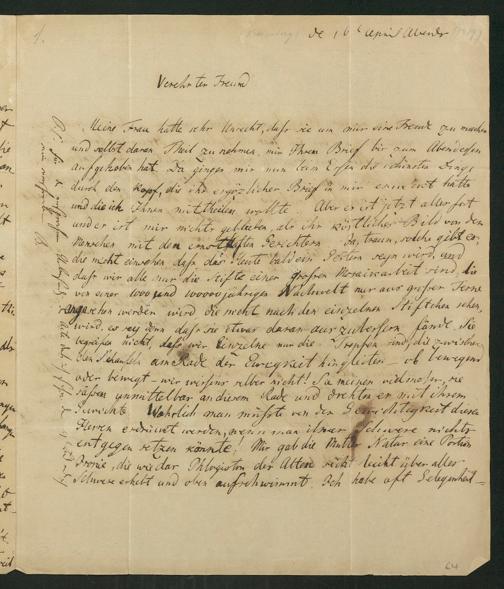 1.
de 16t April Abends
Verehrter Freund
Meine Frau hatte sehr Unrecht, daß sie um mir eine Freude zu machen
und selbst daran Theil zu nehmen, mir Ihren Brief bis zum Abendessen
aufgehoben hat. Da gingen mir nun beim Essen die schönsten Dinge
durch den Kopf, die Ihr ergözlicher Brief in mir erweckt hatte
und die ich Ihnen mittheilen wollte Aber es ist jetzt alles fort
und es ist mir nichts geblieben, als Ihr köstliches Bild von den
Menschen mit den ernsthaften Gesichtern solche gibt es,
die nicht einsehen daß das Heute bald ein Gestern seyn wird, und
daß wir alle nur die Stifte einer großen Mosaicarbeit sind, die
von einer 1000 und 100000jährigen Nachwelt nur aus großer Ferne
angesehen werden wird die nicht nach den einzelnen Stiftchen sehen,
wird, es sey denn daß sie etwas daran auszubessern fände. Sie
begreifen nicht, daß wir Einzelne nur die Tropfen sind, die zwischen
den Schaufeln am Rade der Ewigkeit hingleiten ob bewegend
oder bewegt – wir wissens selber nicht! Sie meinen vielmehr, sie
säßen unmittelbar an diesem Rade und drehten es mit ihrem
Gewichte Wahrlich man müßte von der Gewichtigkeit dieser
Herren erdrückt werden, wenn man ihrer Schwere nichts
entgegen setzen könnte! Mir gab die Mutter Natur eine Portion
Ironie, die wie das Phlogiston der Alten recht leicht über alles
Schwere erhebt und oben aufschwimmt. Ich habe oft Gelegenheit
64